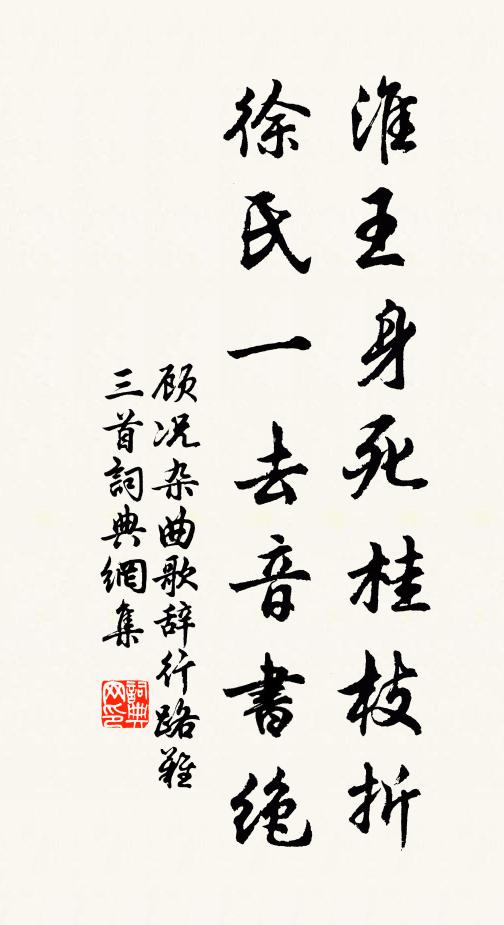 淮王身死桂枝折
徐氏一去音書绝
顾况杂曲歌辞行路難
三首詞典網集
詞典
网印